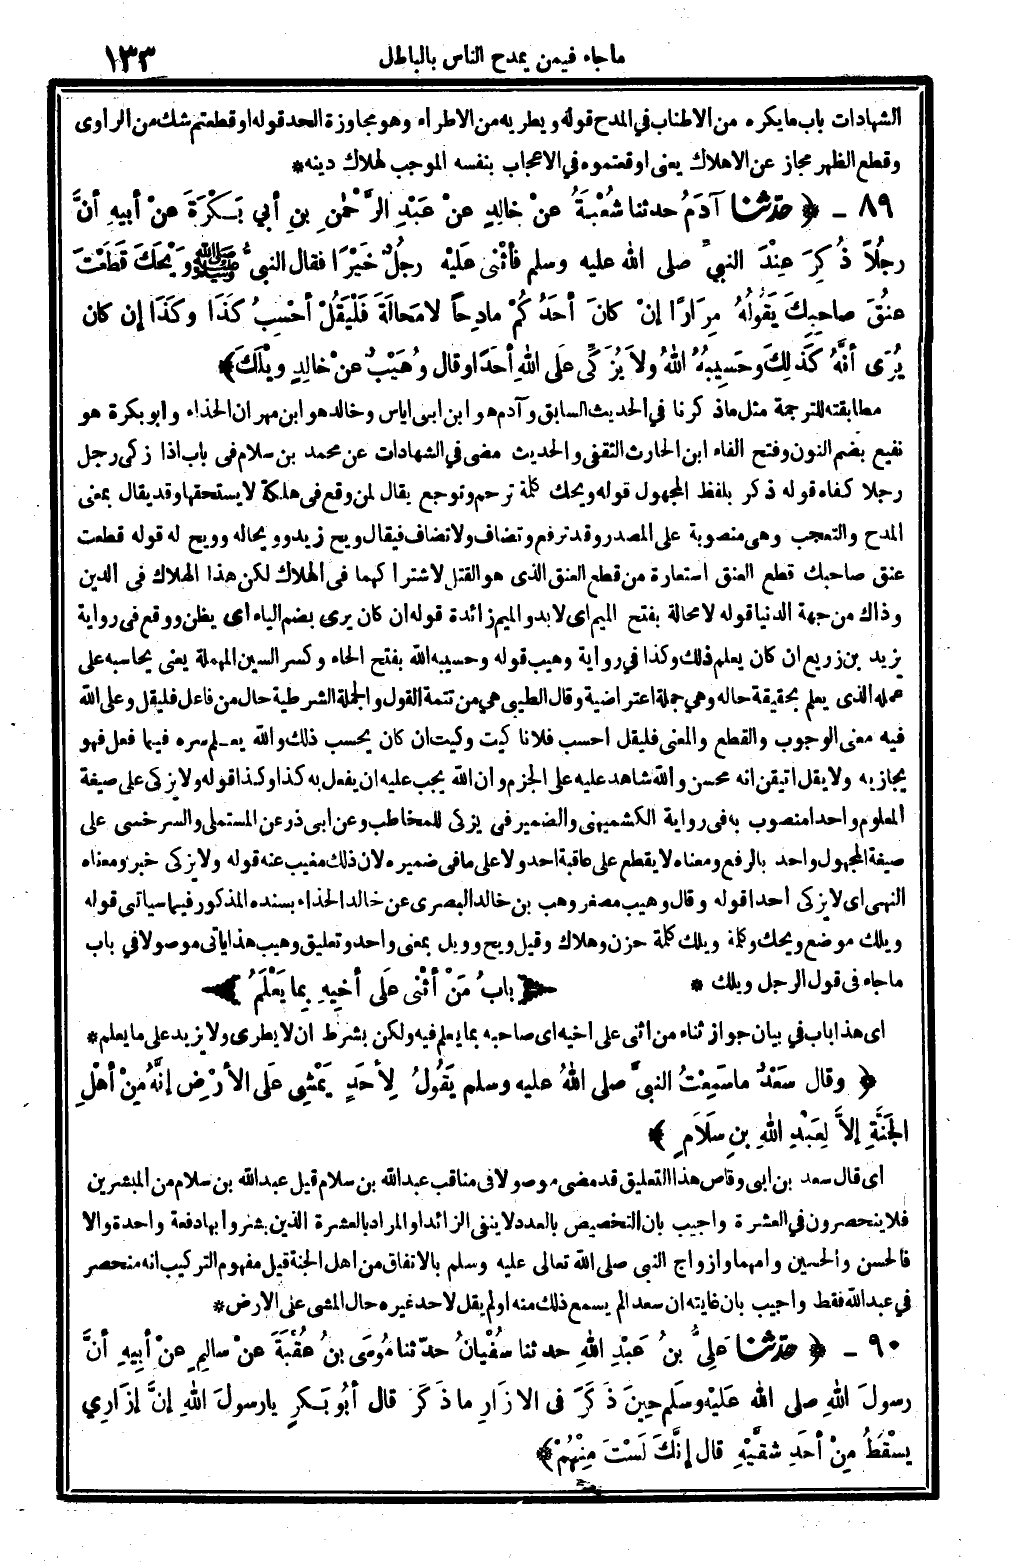 ماجاء فيمن يمدح الناس بالباطل ١٣٣
الشهادات باب ما يكره من الاطناب في المدح قوله ويطريه من الاطراء وهو مجاوزة الحد قوله او قطعتم شك من الراوى
وقطع الظهر مجاز عن الاهلاك يعنى اوقعتموه في الاعجاب بنفسه الموجب لهلاك دينه *
٨٩ ـ ﴿ حدثنا آدَمُ حدثنا شُعْبَةُ عنْ خالِدٍ عنْ عَبْدِ الرَّحْمٰنِ بنِ أبي بَكْرَةَ عنْ أبيهِ أنَّ
رجُلاً ذُكِرَ عِنْدَ النبيِّ صلى الله عليه وسلم فأثْنى عَلَيْهِ رجُلٌ خَيْرًا فقال النبيُّ ﷺ ويْحَكَ قَطَعْتَ
عنُقَ صاحِبِكَ يَقُولُهُ مِرَارًا إنْ كانَ أحَدُكُمْ مادِحاً لامَحالَةَ فَلْيَقُلْ أحْسِبُ كَذَا وكَذَا إن كان
يُرَى أنَّهُ كَذلِكَ وحَسِيبُهُ اللهُ ولا يُزَكِّى عَلَى اللهِ أحَدًا وقال وُهَيْبٌ عنْ خالِدٍ ويْلَكَ ﴾
مطابقته للترجمة مثل ماذكرنا في الحديث السابق وآدم هو ابن ابى اياس وخالد هو ابن مهران الحذاء وابو بكرة هو
نفيع بضم النون وفتح الفاء ابن الحارث الثقفى والحديث مضى في الشهادات عن محمد بن سلام فى باب اذا زكى رجل
رجلا كفاه قوله ذكر بلفظ المجهول قوله ويحك كلمة ترحم وتوجع يقال لمن وقع فى هلكة لا يستحقها وقد يقال بمعنى
المدح والتعجب وهى منصوبة على المصدر وقد ترفع وتضاف ولا تضاف فيقال ويح زيد وويحاله وويح له قوله قطعت
عنق صاحبك قطع العنق استعارة من قطع العنق الذى هو القتل لاشترا كهما فى الهلاك لكن هذا الهلاك فى الدين
وذاك من جهة الدنيا قوله لا محالة بفتح الميم اى لا بد والميم زائدة قوله ان كان يرى بضم الياء اى يظن ووقع فى رواية
يزيد بن زريع ان كان يعلم ذلك وكذا في رواية وهيب قوله وحسيبه الله بفتح الحاء وكسر السين المهملة يعنى يحاسبه على
عمله الذى يعلم بحقيقة حاله وهي جملة اعتراضية وقال الطيبى هي من تتمة القول والجملة الشرطية حال من فاعل فليقل وعلى الله
فيه معنى الوجوب والقطع والمعنى فليقل احسب فلانا كيت وكيت ان كان يحسب ذلك والله يعلم سره فيما فعل فهو
يجازيه ولا يقل اتيقن انه محسن والله شاهد عليه على الجزم وان الله يجب عليه ان يفعل به كذا وكذا قوله ولا يزكى على صيغة
المعلوم واحدا منصوب به فى رواية الكشميهنى والضمير فى يزكى للمخاطب وعن ابى ذر عن المستملى والسرخسى على
صيغة المجهول واحد بالرفع ومعناه لا يقطع على عاقبة احد ولا على مافى ضميره لان ذلك مغيب عنه قوله ولا يزكى خبر ومعناه
النهى اى لا يزكى أحدا قوله وقال وهيب مصغر وهب بن خالد البصرى عن خالد الحذاء بسنده المذكور فيما سياتى قوله
ويلك موضع ويحك وكلمة ويلك كلمة حزن وهلاك وقيل ويح وويل بمعنى واحد وتعليق وهيب هذا ياتى موصولا في باب
ماجاء فى قول الرجل ويلك *
﴿ بابُ مَنْ أثْنى عَلَى أخيهِ بِما يَعْلَمُ ﴾
اى هذا باب في بيان جواز ثناء من اثنى على اخيه اى صاحبه بما يعلم فيه ولكن بشرط ان لا يطرى ولا يزيد على ما يعلم *
﴿ وقال سَعْدٌ ماسَمِعْتُ النبيَّ صلى اللهُ عليه وسلم يَقُولُ لِأحَدٍ يَمْشِي عَلَى الأرْضِ إنَّهُ مِنْ أهْلِ
الجَنَّةِ إلاَّ لِعَبْدِ اللهِ بنِ سَلَامٍ ﴾
اى قال سعد بن ابى وقاص هذا التعليق قد مضى موصولا فى مناقب عبدالله بن سلام قيل عبدالله بن سلام من المبشرين
فلا ينحصرون في العشرة واجيب بان التخصيص بالعدد لا ينفى الزائد او المراد بالعشرة الذين بشروا بها دفعة واحدة والا
فالحسن والحسين وامهما وازواج النبى صلى الله تعالى عليه وسلم بالاتفاق من اهل الجنة قيل مفهوم التركيب انه منحصر
في عبدالله فقط واجيب بان غايته ان سعدا لم يسمع ذلك منه او لم يقل لاحد غيره حال المشى على الارض *
٩٠ ـ ﴿ حدثنا عَلِيُّ بنُ عَبْدِ اللهِ حدثنا سُفْيانُ حدّثنا مُوسَى بنُ عُقْبَةَ عنْ سالِمٍ عنْ أبِيهِ أنَّ
رسولَ اللهِ صلى الله عَلَيْهِ وسلَم حِينَ ذَكَرَ فى الازَارِ ماذَكَرَ قال أبُو بَكرٍ يارسولَ اللهِ إنَّ إزَارِي
يسْقُطُ مِنْ أحَدِ شقَّيْهِ قال إنَّكَ لَسْتَ مِنْهُمْ ﴾